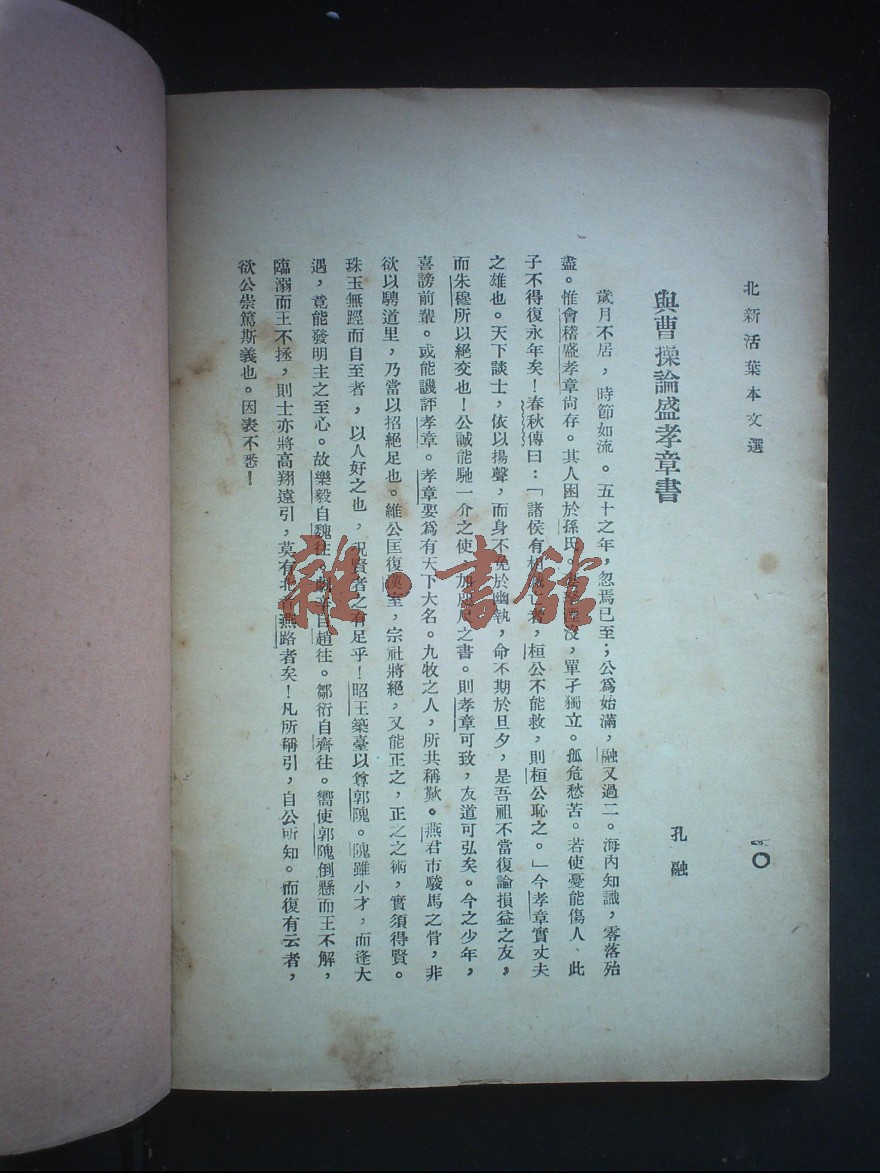 北新活葉本文選
與曹操論盛孝章書
孔融
歲月不居，時節如流。五十之年，忽焉已至；公爲始滿，融又過二。海內知識，零落殆
盡。惟會稽盛孝章尙存。其人困於孫氏。妻孥湮沒，單孑獨立。孤危愁苦。若使憂能傷人、此
子不得復永年矣！春秋傳曰：「諸侯有相滅亡者，桓公不能救，則桓公恥之。」今孝章實丈夫
之雄也。天下談士，依以揚聲，而身不免於幽執，命不期於旦夕，是吾祖不當復論損益之友，
而朱穆所以絕交也！公誠能馳一介之使，加咫尺之書。則孝章可致，友道可弘矣。今之少年，
喜謗前輩。或能譏評孝章。孝章要爲有天下大名。九牧之人，所共稱歎。燕君市駿馬之骨，非
欲以騁道里，乃當以招絕足也。維公匡復漢室，宗社將絕，又能正之，正之之術，實須得賢。
珠玉無脛而自至者，以人好之也，況賢者之有足乎！昭王築臺以尊郭隗。隗雖小才，而逢大
遇，竟能發明主之至心。故樂毅自魏往，劇辛自趙往。鄒衍自齊往。嚮使郭隗倒懸而王不解，
臨溺而王不拯，則士亦將高翔遠引，莫有北首燕路者矣！凡所稱引，自公所知。而復有云者，
欲公崇篤斯義也。因表不悉！
雜·書館